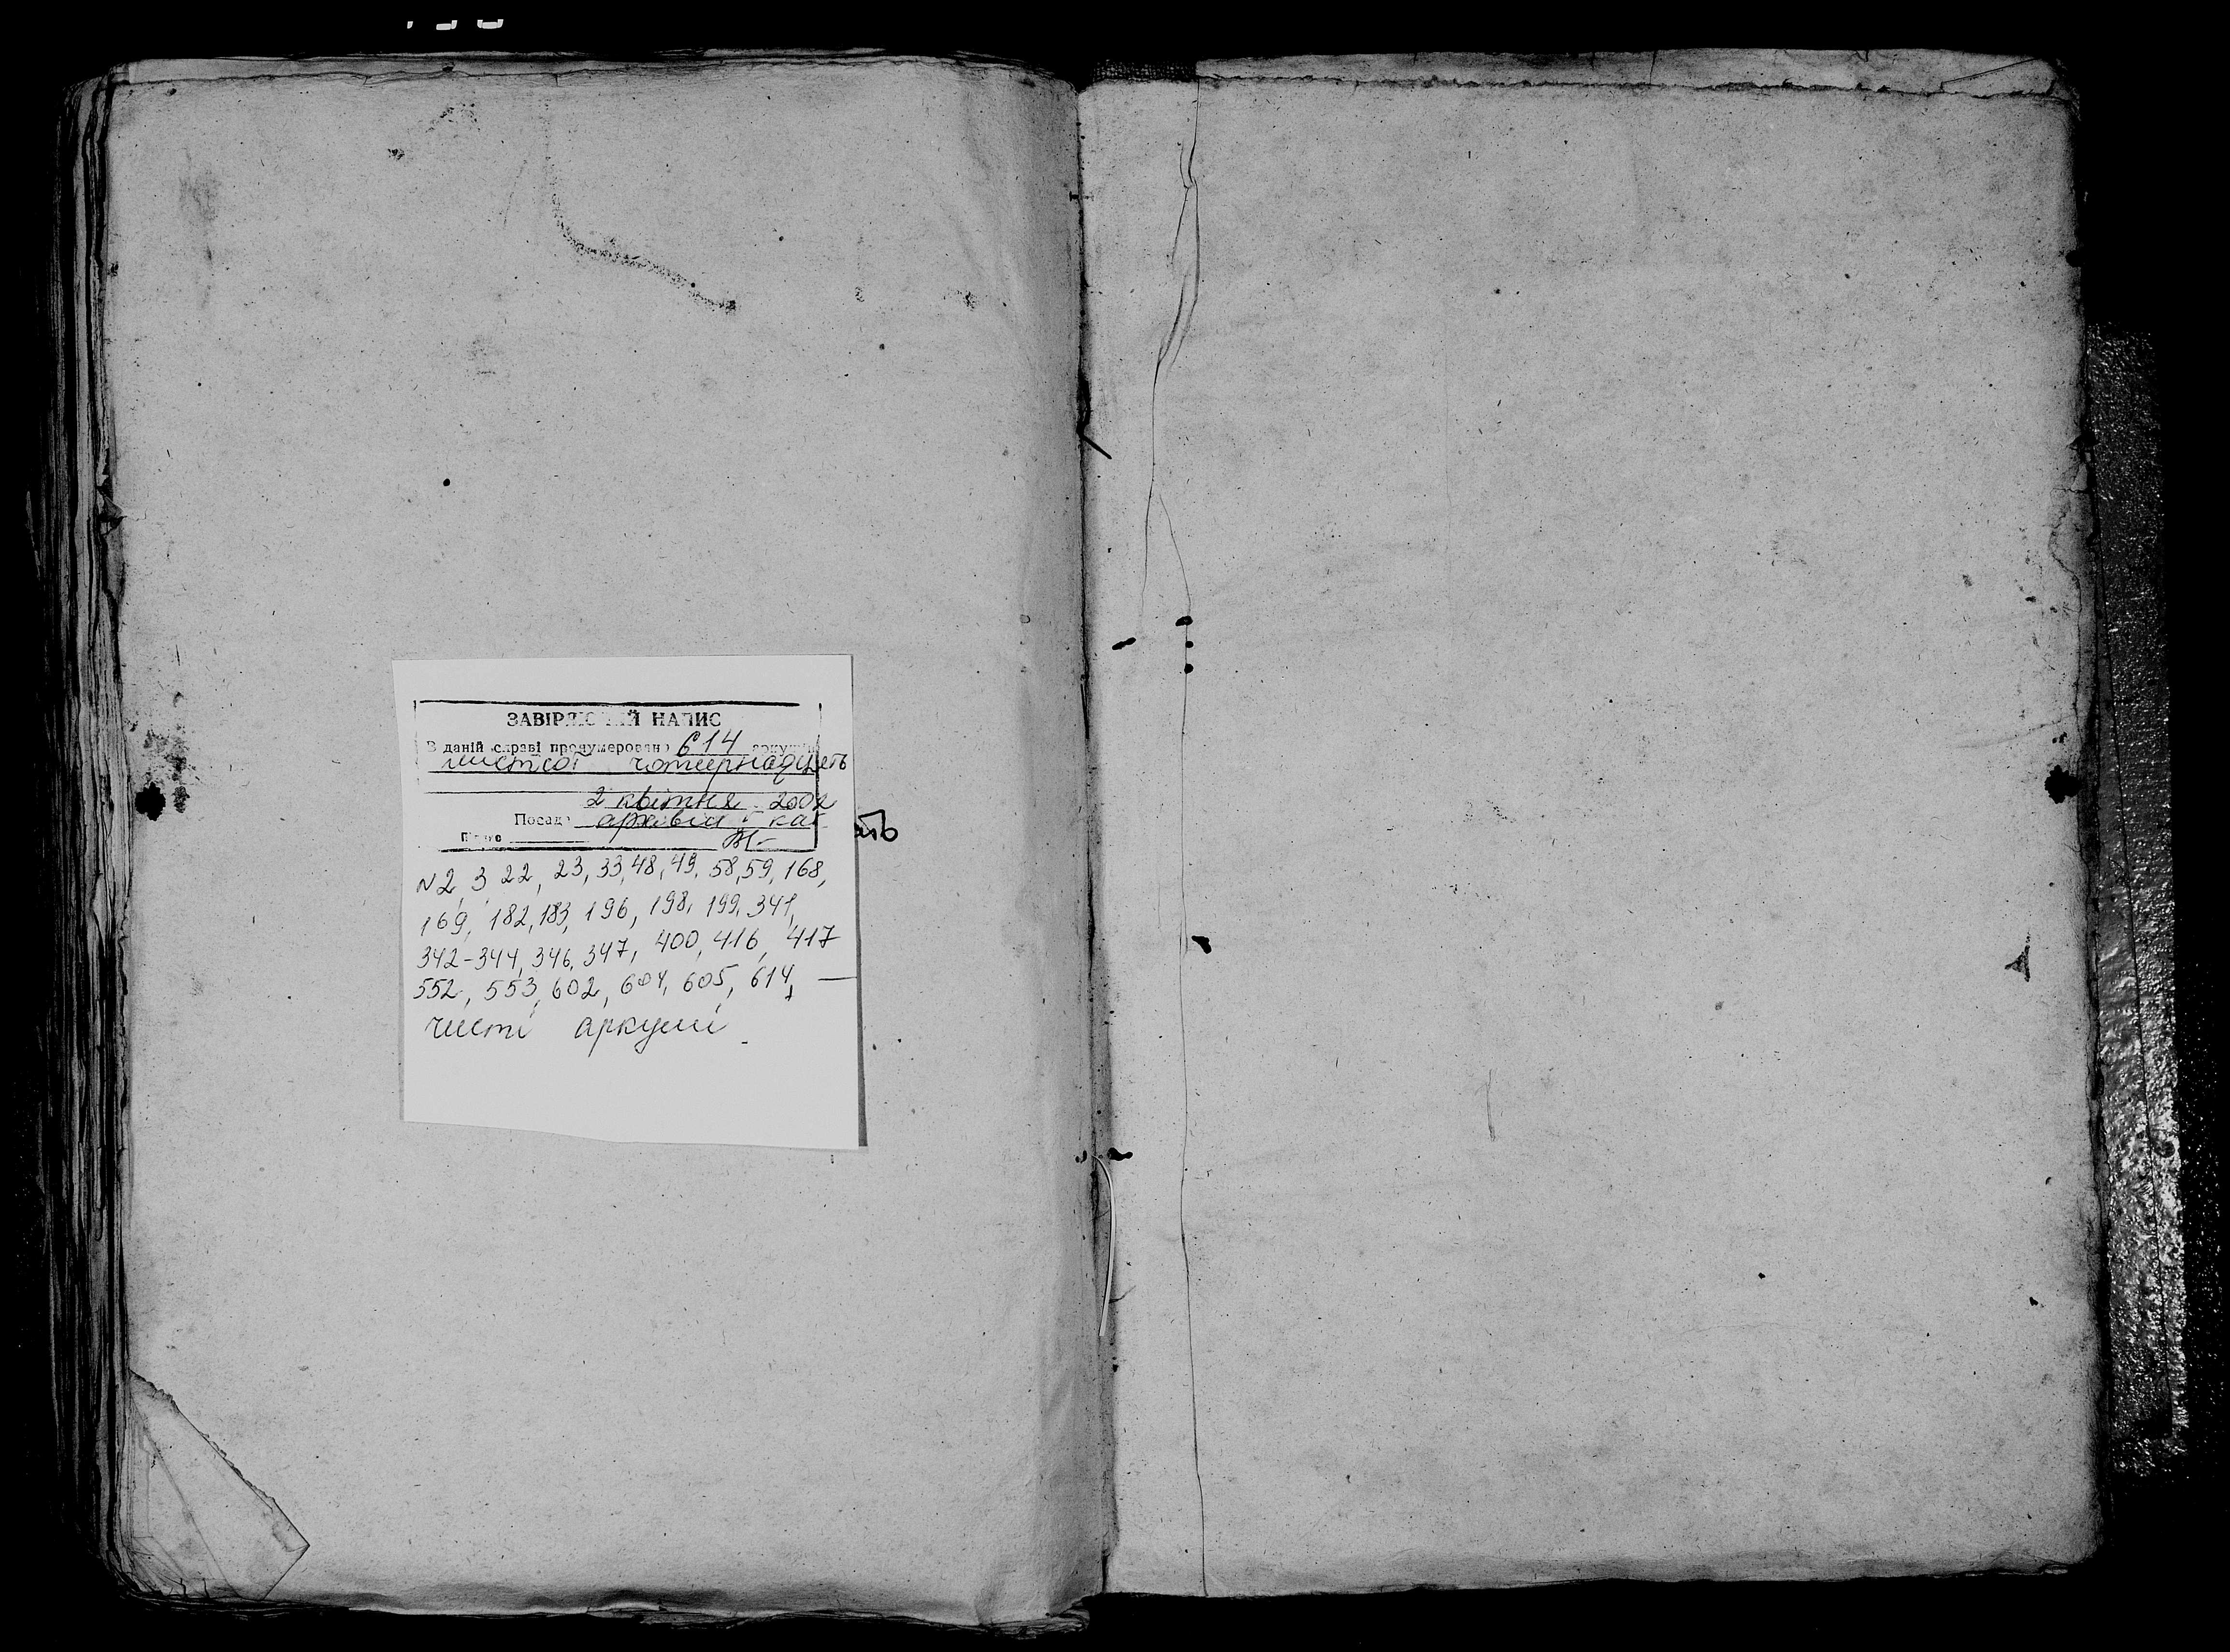 ЗАВІРЯЮЧИЙ НАПИС
В даній справі пронумеровано 614 аркушів
шістсот чотирнадцять
2 квітня 2002
Посада архівіст І кат
Підпис
№ 2, 3, 22, 23, 33, 48, 49, 58, 59, 168,
169, 182, 183, 196, 198, 199, 341,
342-344, 346, 347, 400, 416, 417
552, 553, 602, 604, 605, 614, —
чисті аркуші
ать